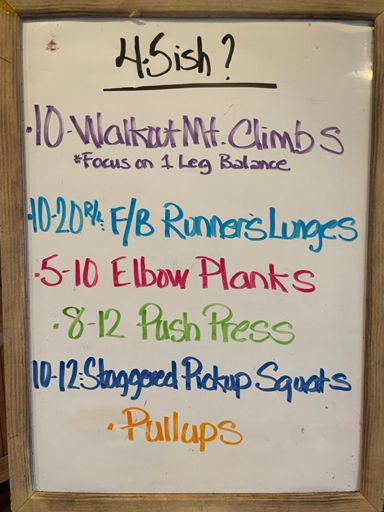 4.5ish?
·10-Walkout Mt. Climbs
*Focus on 1 Leg Balance
·10-20 R/L: F/B Runner's Lunges
·5-10 Elbow Planks
·8-12 Push Press
10-12: Staggered Pickup Squats
·Pullups